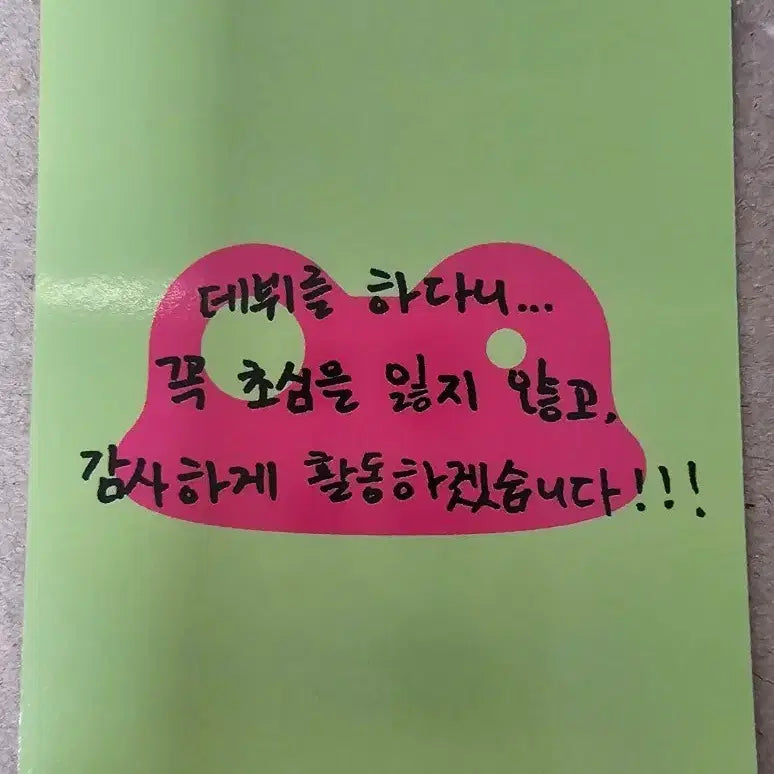 데뷔를 하다니...
꼭 초심을 잃지 않고,
감사하게 활동하겠습니다!!!